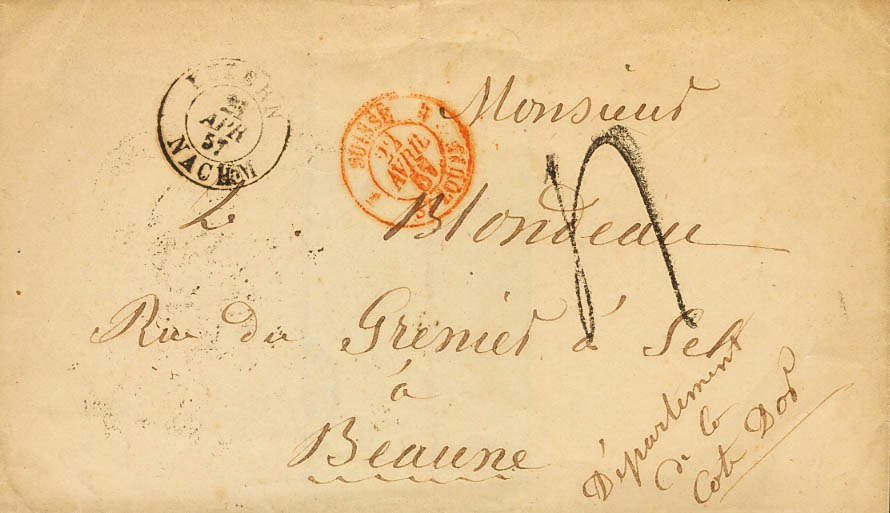 LUZERN
AVR
57
NACHM
SUISSE
22
AVRIL
57
Monsieur
L Blondeau
Rue du Grenier à Sel
à
Beaune
Département
de la
Cote Dor